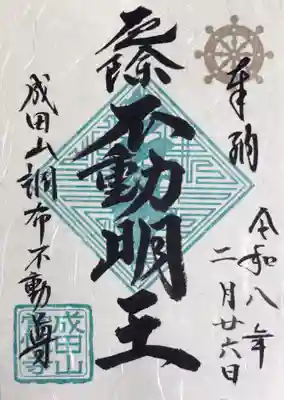 奉納
令和八年
二月廿六日
厄除不動明王
成田山調布不動尊
成田山
常性寺